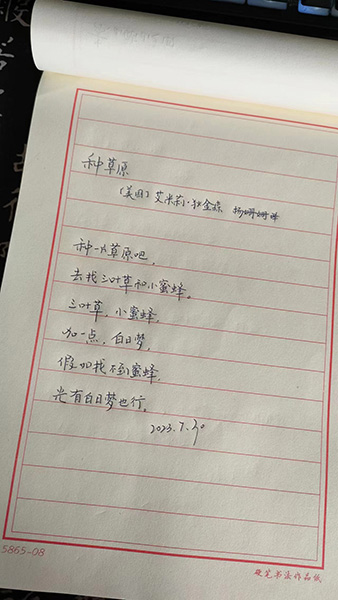 种草原
(美国) 艾米莉·狄金森 杨姗姗译
种一片草原吧，
去找三叶草和小蜜蜂。
三叶草，小蜜蜂，
加一点，白日梦，
假如找不到蜜蜂，
光有白日梦也行。
2023.7.30
5865-08
硬笔书法作品纸